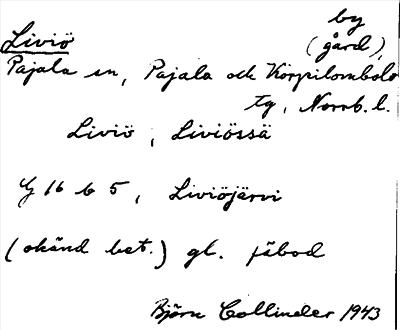 by
Liviö (gård),
Pajala sn, Pajala och Korpilombolo
tg, Norrb. l.
Liviö, Liviössä
Y 16 b 5, Liviöjärvi
(okänd bet.) gl. fäbod
Björn Collinder 1943